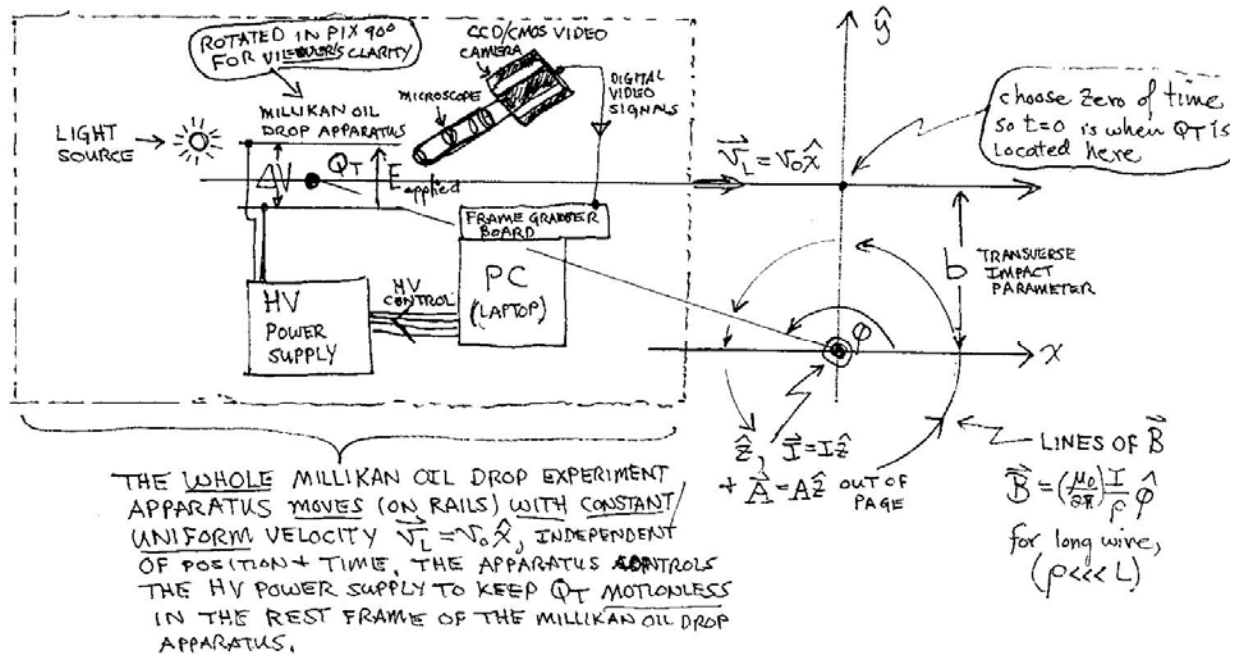 ROTATED IN PIX 90°
FOR VIEWER'S CLARITY
CCD/CMOS VIDEO
CAMERA
MICROSCOPE
DIGITAL
VIDEO
SIGNALS
MILLIKAN OIL
DROP APPARATUS
LIGHT
SOURCE
ΔV
Q_T
E_applied
FRAME GRABBER
BOARD
PC
(LAPTOP)
HV
CONTROL
HV
POWER
SUPPLY
ŷ
choose zero of time
so t=0 is when Q_T is
located here
\vec{v}_L = v_0 x̂
b
TRANSVERSE
IMPACT
PARAMETER
φ
x
ẑ, \vec{I} = Iẑ
+ \vec{A} = Aẑ OUT OF
PAGE
LINES OF \vec{B}
\vec{B} = (μ_0/2π) I/ρ φ̂
for long wire,
(ρ<<< L)
THE WHOLE MILLIKAN OIL DROP EXPERIMENT
APPARATUS MOVES (ON RAILS) WITH CONSTANT/
UNIFORM VELOCITY \vec{v}_L = v_0 x̂, INDEPENDENT
OF POSITION + TIME. THE APPARATUS CONTROLS
THE HV POWER SUPPLY TO KEEP Q_T MOTIONLESS
IN THE REST FRAME OF THE MILLIKAN OIL DROP
APPARATUS.